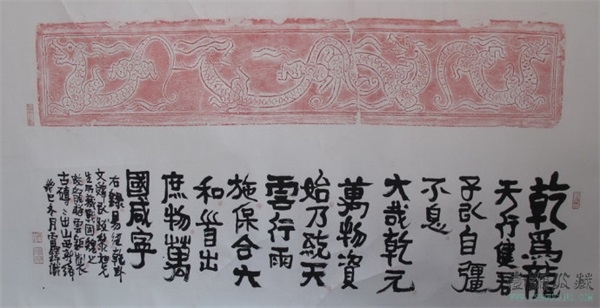 乾為龍
天行健君
子以自彊
不息
大哉乾元
萬物資
始乃統天
雲行雨
施保合大
和首出
庶物萬
國咸寧
右錄易經乾卦
生所藏戰國魏之